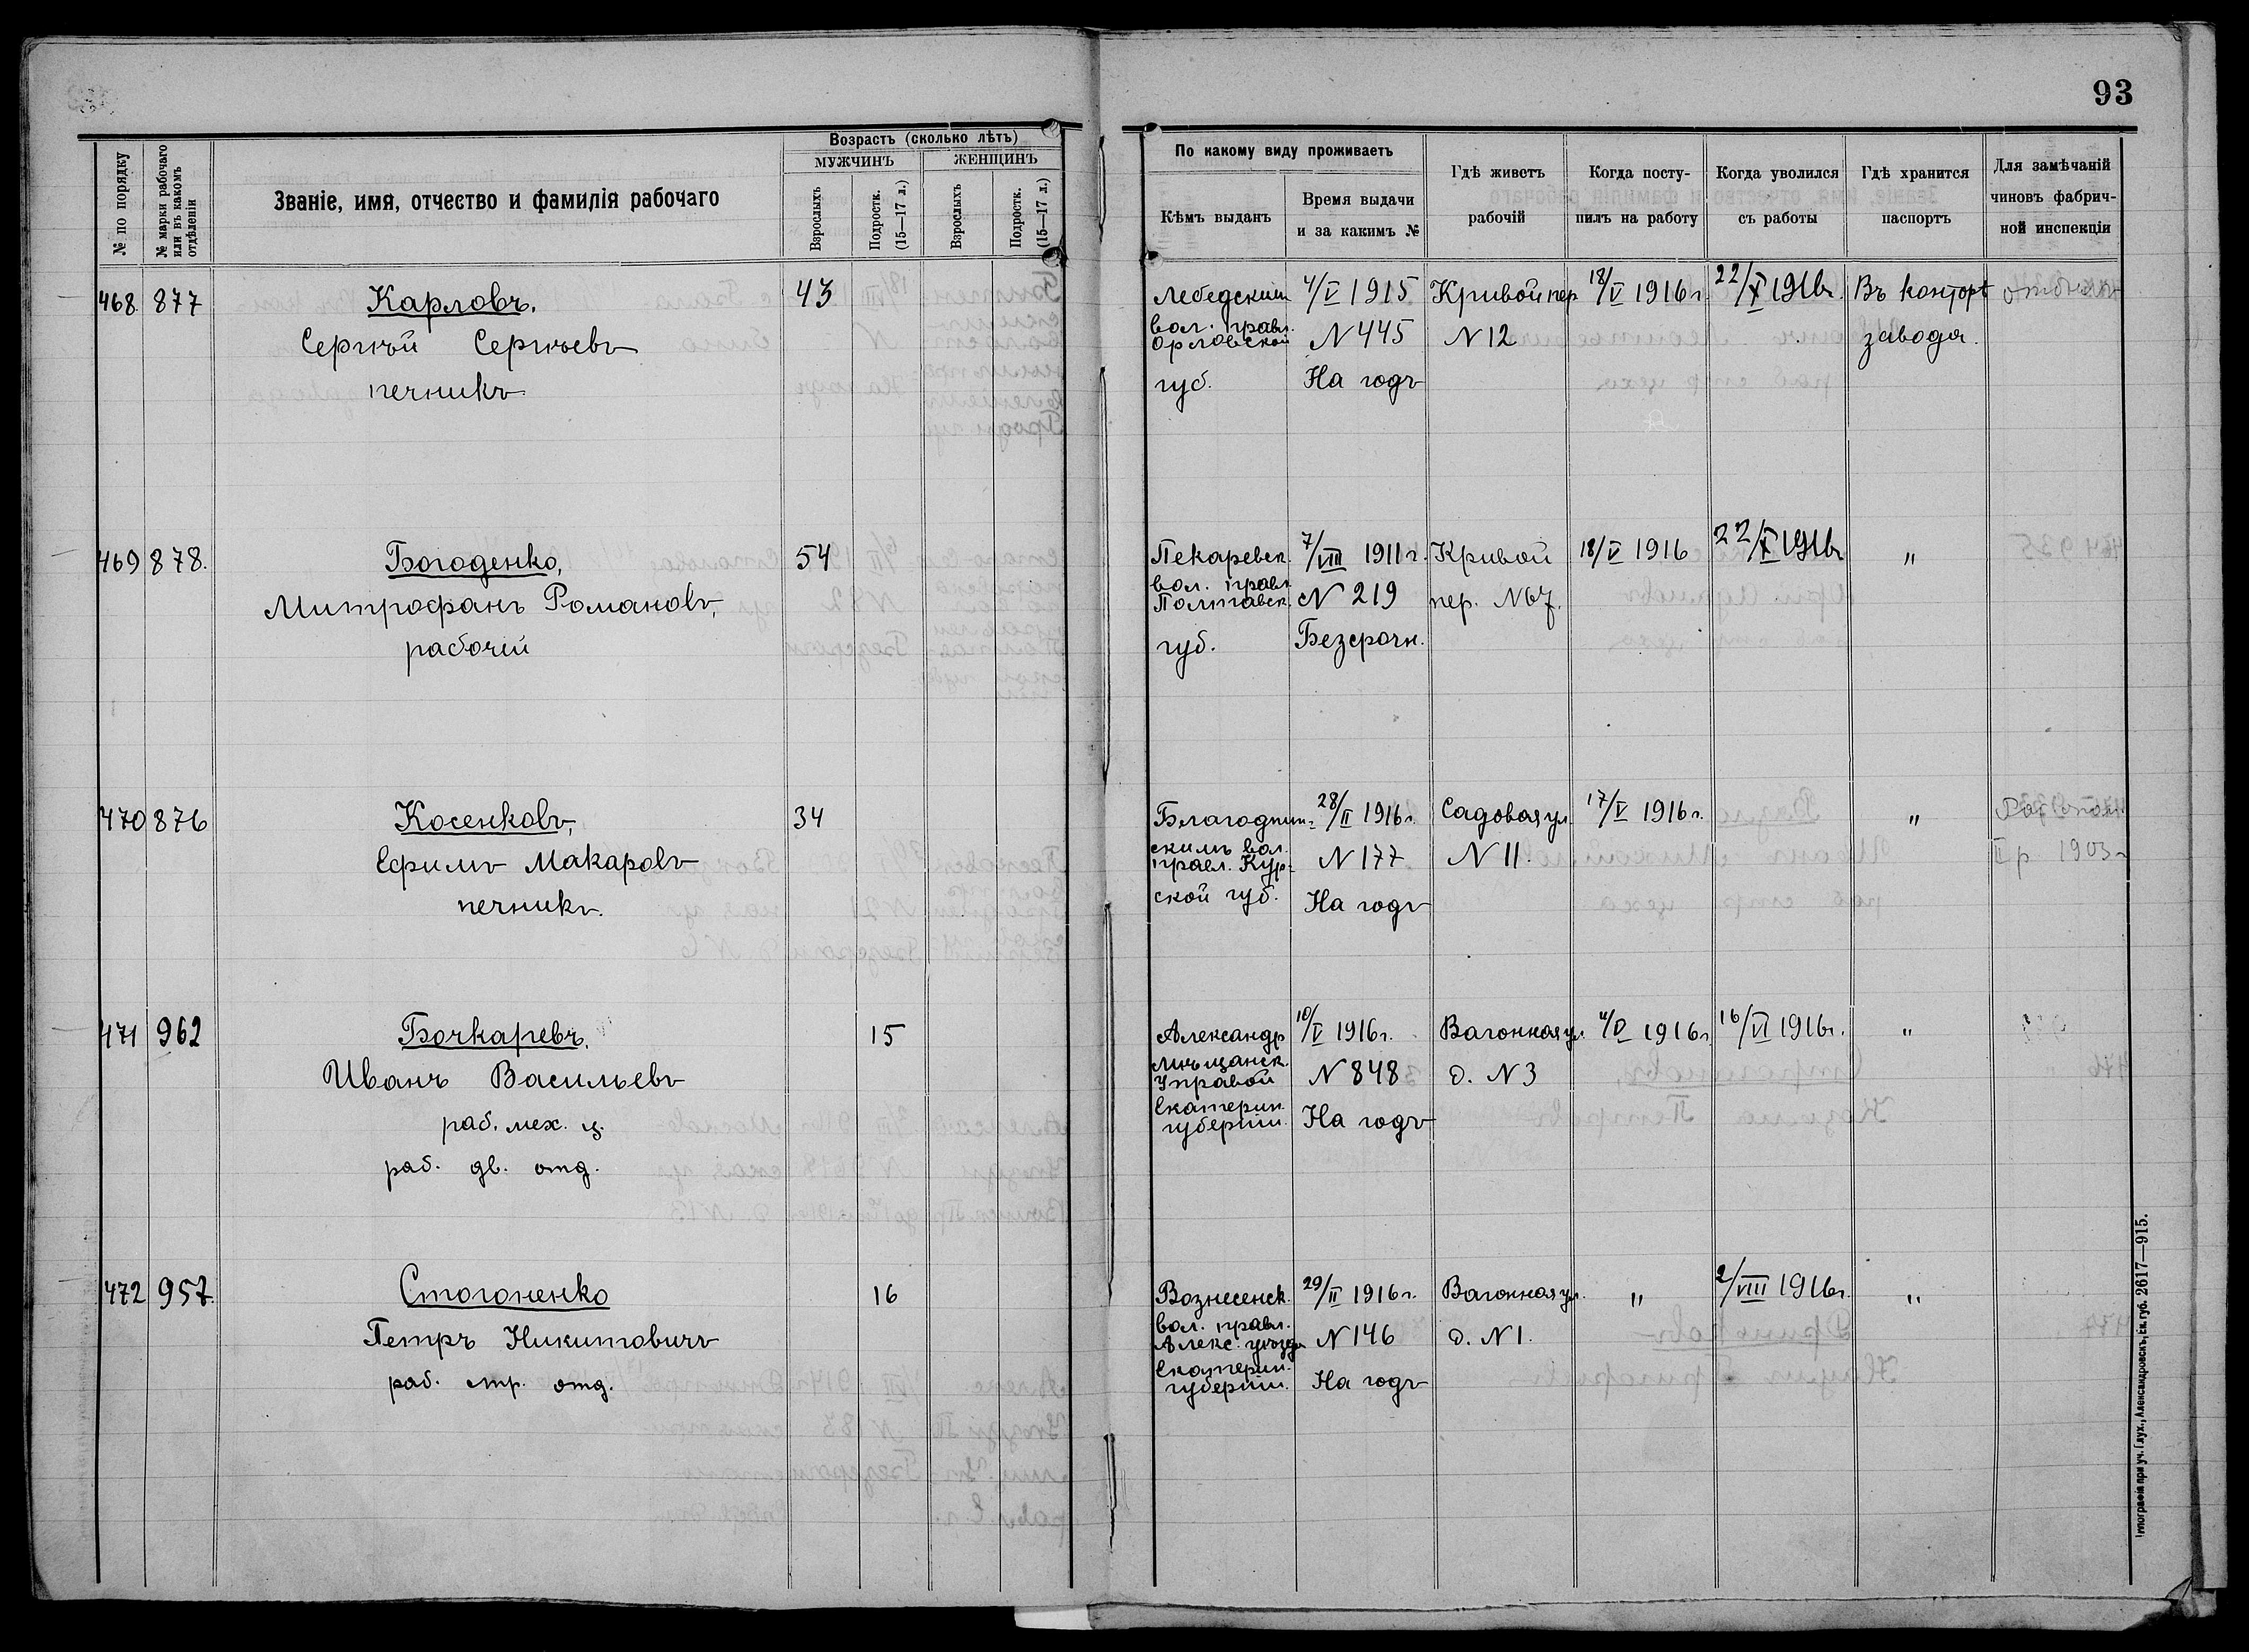 93
№ по порядку
№ марки рабочаго или въ какомъ отдѣленіи
Званіе, имя, отчество и фамилія рабочаго
Возрастъ (сколько лѣтъ)
МУЖЧИНЪ
ЖЕНЩИНЪ
Взрослыхъ
Подростк. (15—17 л.)
Взрослыхъ
Подростк. (15—17 л.)
По какому виду проживаетъ
Кѣмъ выданъ
Время выдачи и за какимъ №
Гдѣ живетъ рабочій
Когда поступилъ на работу
Когда уволился съ работы
Гдѣ хранится паспортъ
Для замѣчаній чиновъ фабричной инспекціи
468. 877
Карловъ,
Сергѣй Сергѣевъ
печникъ
43
Лебедским
вол. правл.
Орловской
губ.
4/V 1915
N 445
На годъ
Кривой пер
N 12
18/V 1916 г.
22/X 1916г.
Въ конторѣ
завода.
469 878.
Богоденко,
Митрофанъ Романовъ,
рабочій
54
Пекаревск.
вол. правл.
Полтавск.
губ.
7/VIII 1911 г.
N 219
Безсрочн.
Кривой
пер. N 67.
18/V 1916
22/X 1916г
"
470 876
Косенковъ,
Ефимъ Макаровъ
печникъ.
34
Благодатн-
скимъ вол.
правл. Кур-
ской губ.
28/II 1916 г.
N 177
На годъ
Садовая ул.
N 11.
17/V 1916 г.
"
II р 1903
471 962
Бочкаревъ,
Иванъ Васильевъ
раб. мех. ц.
раб. дв. отд.
15
Александр
мѣщанск.
Управой
Екатерин.
губерніи.
10/V 1916 г.
N 848
На годъ
Вагонная ул.
д. N 3
11/V 1916 г.
16/VI 1916г.
"
472 957.
Стогоненко
Петръ Никитовичъ
раб. стр. отд.
16
Вознесенск.
вол. правл.
Алекс. уѣзда
Екатерин.
губерніи.
29/II 1916 г.
N 146
На годъ
Вагонная ул.
д. N 1.
"
2/VIII 1916г.
"
Типографія при уч. Глух., Александровскъ, Ек. губ. 2617—915.